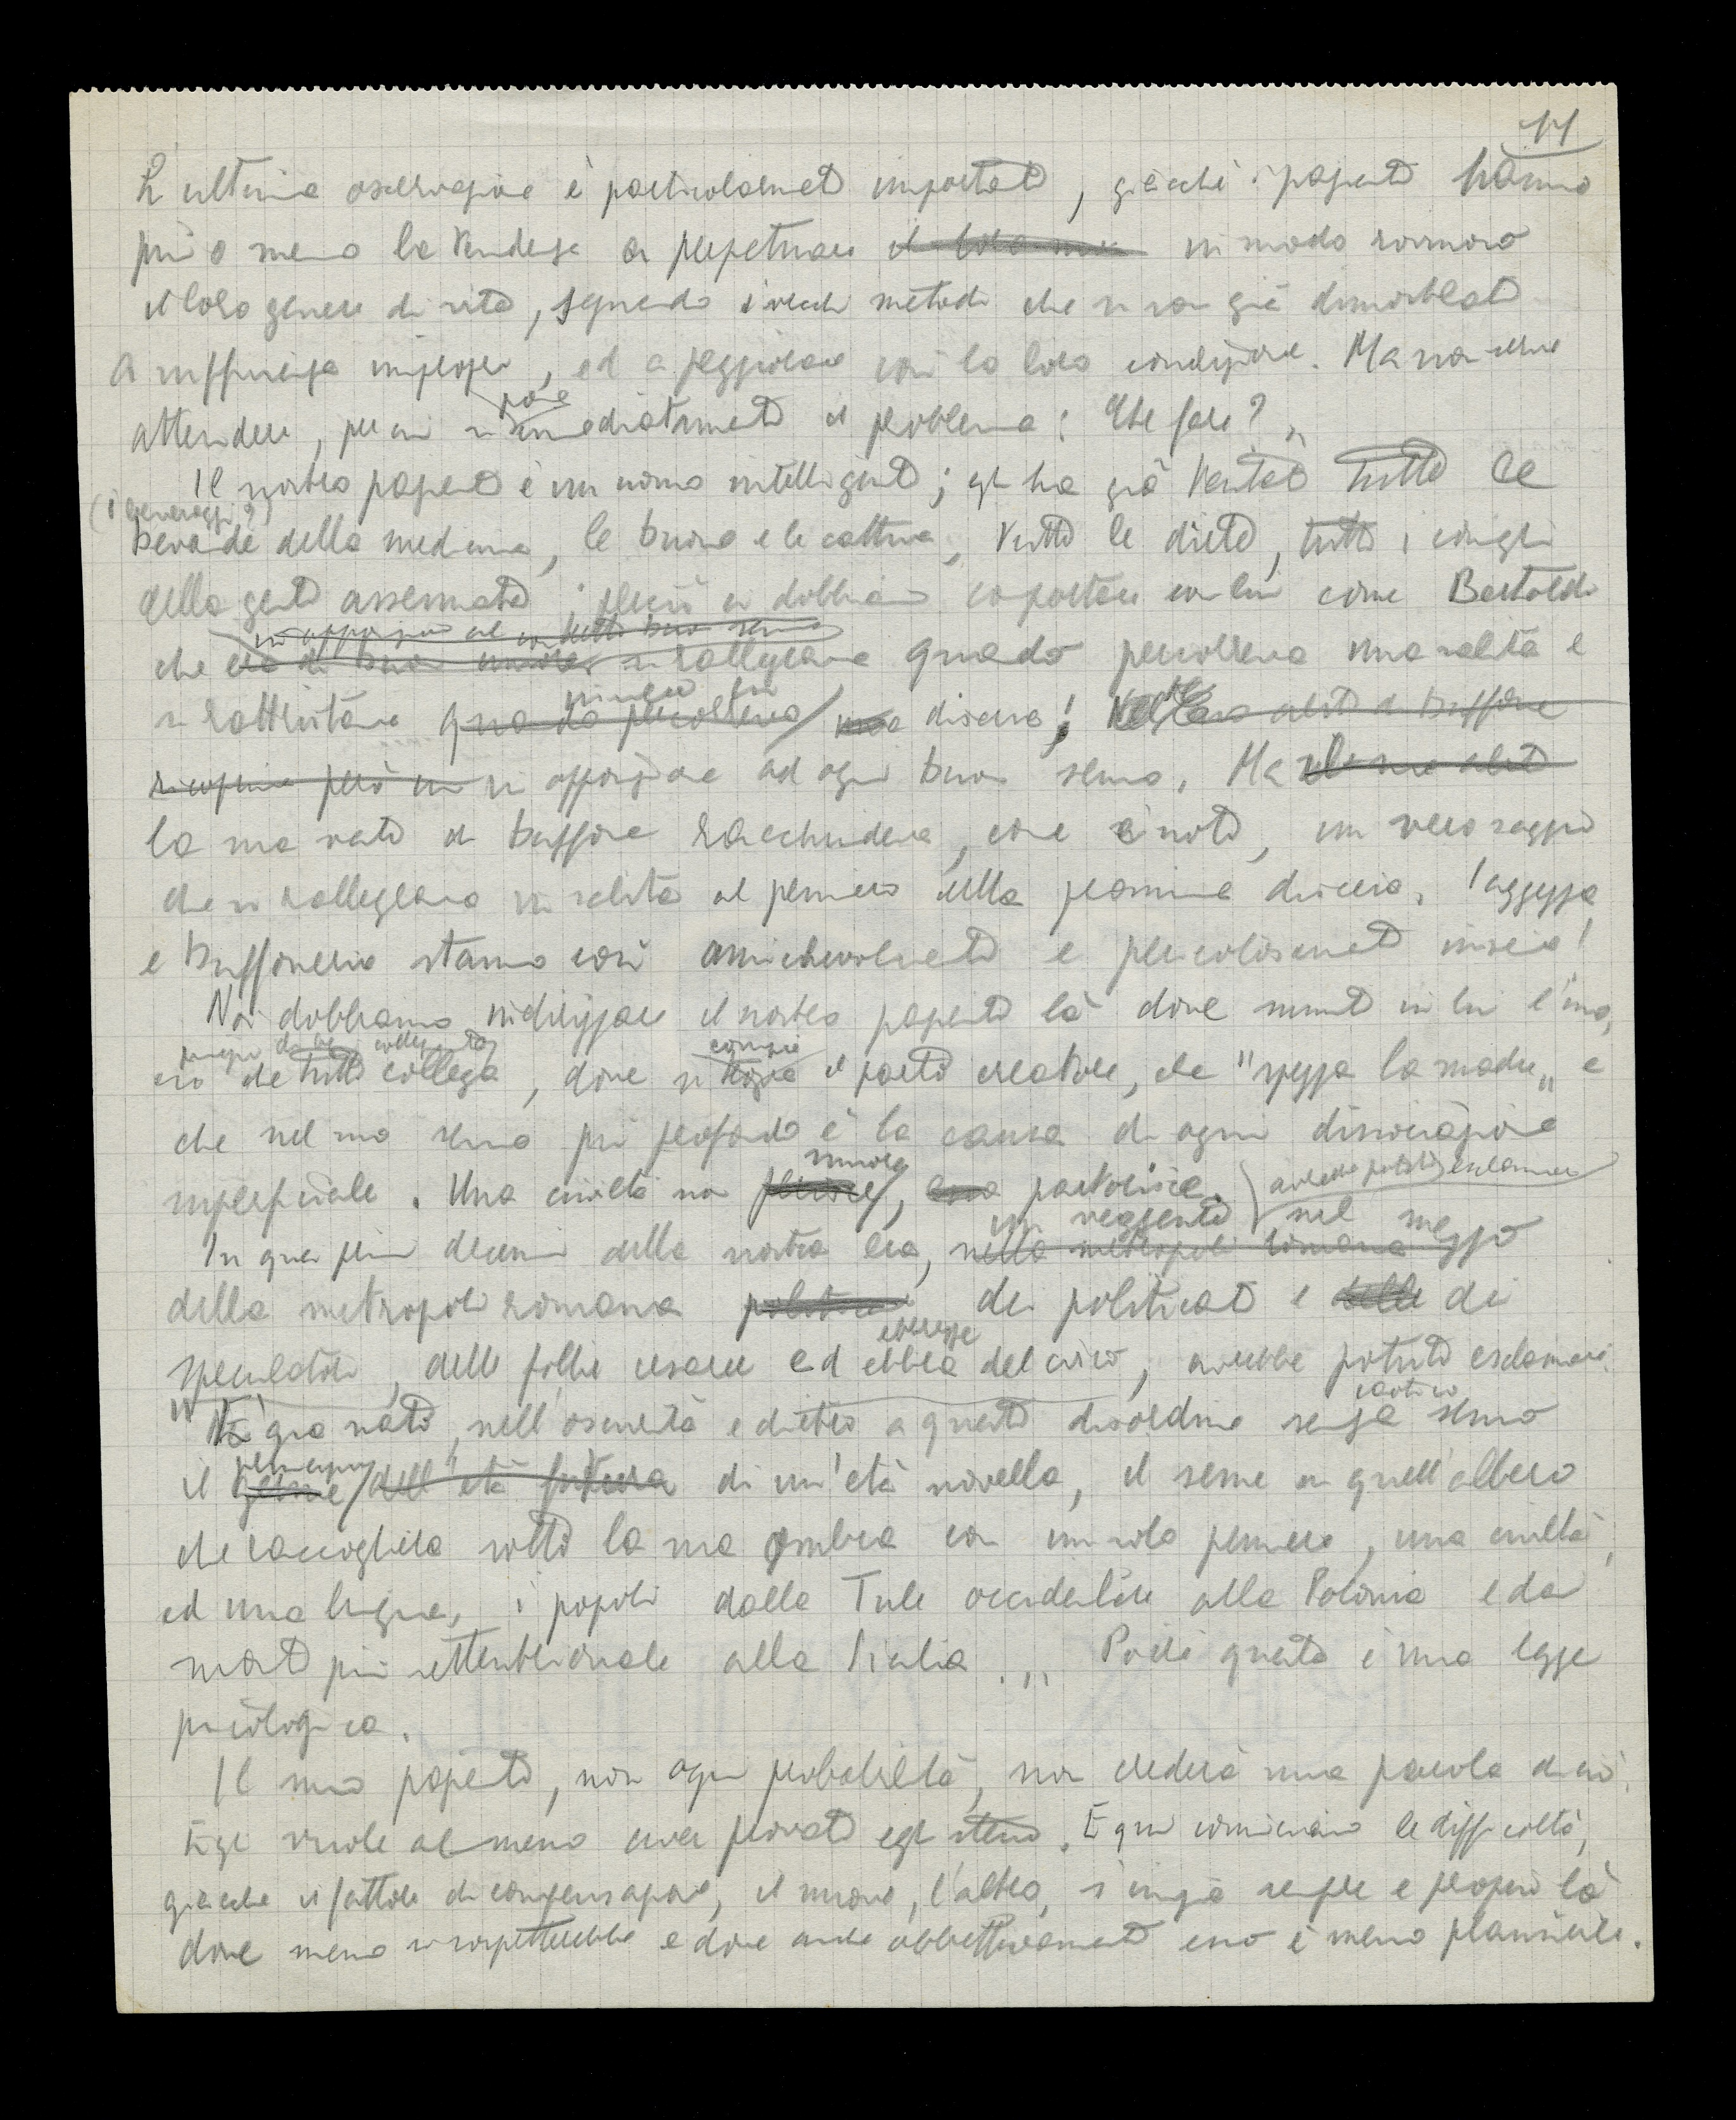 11
L'ultima osservazione è particolarmente importante, giacchè i pazienti hanno
più o meno la tendenza di perpetuare in modo rovinoso
il loro genere di vita, seguendo i vecchi metodi che si son già dimostrati
a sufficienza improprii, ed a peggiorare così la loro condizione. Ma non serve
pone
attendere, per cui si immediatamente il problema: Che fare?"
Il nostro paziente è un uomo intelligente; egli ha già tentato tutte le
(i beveraggi?)
bevande della medicina, le buone e le cattive, tutte le diete, tutti i consigli
della gente assennata; perciò ci dobbiamo comportare con lui come Bertoldo
in opposizione ad ogni buon senso
che era di buon umore si rallegrava quando percorreva una salita e
si rattristava quando percorreva una discesa;
ricopriva però in opposizione ad ogni buon senso. Ma
la sua veste di buffone racchiudeva, come è noto, un vero saggio
che si rallegrava in salita al pensiero della prossima discesa. Saggezza
e buffoneria stanno così amichevolmente e pericolosamente insieme!
Noi dobbiamo indirizzare il nostro paziente là dove sente in lui l'uno,
ciò che tutto collega, dove si compie il parto creatore, che "spezza la madre" e
che nel suo senso più profondo è la causa di ogni dissociazione
superficiale. Una civiltà non muore, essa partorisce.
avrebbe potuto esclamare
un veggente nel mezzo
In quei primi decenni della nostra era, nella metropoli romana
della metropoli romana dei politicanti e delle di
speculatori, delle follie cesaree ed ebbra del circo, avrebbe potuto esclamare:
caotico
"È già nato, nell'oscurità e dietro a questo disordine senza senso
il germe dell'età futura di un'età novella, il seme di quell'albero
che raccoglierà sotto la sua ombra con un solo pensiero, una civiltà,
ed una lingua, i popoli dalla Tule occidentale alla Polonia e dai
monti più settentrionale alla Sicilia." Poichè questa è una legge
psicologica.
Il mio paziente, con ogni probabilità, non crederà una parola di ciò.
Egli vuole almeno aver provato egli stesso. E qui cominciano le difficoltà,
giacchè il fattore di compensazione, il nuovo, l'altro, s'inizia sempre e proprio là
dove meno si sospetterebbe e dove anche obbiettivamente esso è meno plausibile.